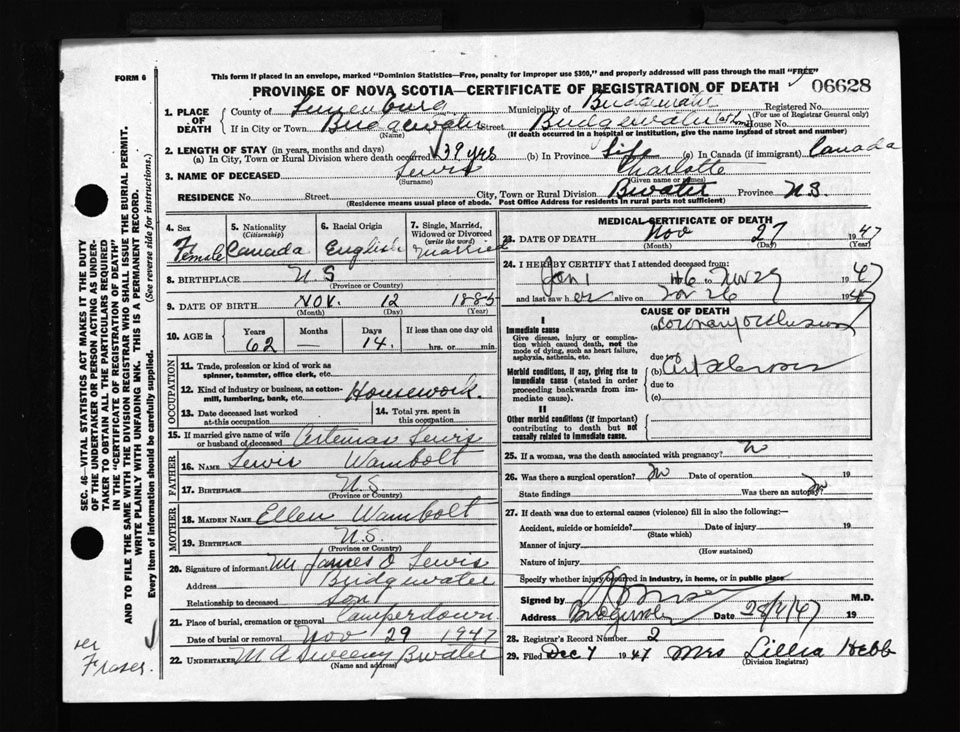 FORM 6
This form if placed in an envelope, marked "Dominion Statistics—Free, penalty for improper use $300," and properly addressed will pass through the mail "FREE"
PROVINCE OF NOVA SCOTIA—CERTIFICATE OF REGISTRATION OF DEATH
06628
1. PLACE OF DEATH
County of Lunenburg Municipality of Bridgewater Registered No.
(For use of Registrar General only)
If in City or Town Bridgewater Street Bridgewater (at home) House No.
(Name) (If death occurred in a hospital or institution, give the name instead of street and number)
2. LENGTH OF STAY (in years, months and days)
(a) In City, Town or Rural Division where death occurred 39 yrs (b) In Province Life (c) In Canada (if immigrant) Canada
3. NAME OF DECEASED Lewis Charlotte
(Surname) (Given name or names)
RESIDENCE No. Street City, Town or Rural Division Bwater Province N.S.
(Residence means usual place of abode. Post Office Address for residents in rural parts not sufficient)
4. Sex Female
5. Nationality (Citizenship) Canada
6. Racial Origin English
7. Single, Married, Widowed or Divorced (write the word) Married
8. BIRTHPLACE N.S
(Province or Country)
9. DATE OF BIRTH Nov. 12 1885
(Month) (Day) (Year)
10. AGE in Years 62 Months — Days 14. If less than one day old
hrs. or min.
OCCUPATION
11. Trade, profession or kind of work as spinner, teamster, office clerk, etc.
12. Kind of industry or business, as cotton-mill, lumbering, bank, etc. Housework.
13. Date deceased last worked at this occupation
14. Total yrs. spent in this occupation
15. If married give name of wife or husband of deceased Artemas Lewis
FATHER
16. NAME Lewis Wambolt
17. BIRTHPLACE N.S.
(Province or Country)
MOTHER
18. MAIDEN NAME Ellen Wambolt
19. BIRTHPLACE N.S.
(Province or Country)
20. Signature of informant Mr James O Lewis
Address Bridgewater
Relationship to deceased Son
21. Place of burial, cremation or removal Camperdown
Date of burial or removal Nov 29 1947
22. UNDERTAKER M A Sweeny Bwater
(Name and address)
MEDICAL CERTIFICATE OF DEATH
23. DATE OF DEATH Nov 27 1947
(Month) (Day) (Year)
24. I HEREBY CERTIFY that I attended deceased from:
Jan 1 46 to Nov 27 1947
and last saw her alive on Nov 26 1947
CAUSE OF DEATH
I
Immediate cause
Give disease, injury or complication which caused death, not the mode of dying, such as heart failure, asphyxia, asthenia, etc.
(a) coronary occlusion
due to
Morbid conditions, if any, giving rise to immediate cause (stated in order proceeding backwards from immediate cause).
(b)
due to
(c)
II
Other morbid conditions (if important) contributing to death but not causally related to immediate cause.
25. If a woman, was the death associated with pregnancy? No
26. Was there a surgical operation? No Date of operation 19
State findings Was there an autopsy? No
27. If death was due to external causes (violence) fill in also the following:—
Accident, suicide or homicide? Date of injury 19
(State which)
Manner of injury
(How sustained)
Nature of injury
Specify whether injury occurred in industry, in home, or in public place
Signed by M.D.
Address Date 28/2/47 19
28. Registrar's Record Number 2
29. Filed Dec 7 1947 Mrs Lillia Hebb
(Division Registrar)
SEC. 46—VITAL STATISTICS ACT MAKES IT THE DUTY
OF THE UNDERTAKER OR PERSON ACTING AS UNDERTAKER TO OBTAIN ALL THE PARTICULARS REQUIRED
IN THE "CERTIFICATE OF REGISTRATION OF DEATH"
AND TO FILE THE SAME WITH THE DIVISION REGISTRAR WHO SHALL ISSUE THE BURIAL PERMIT.
WRITE PLAINLY WITH UNFADING INK. THIS IS A PERMANENT RECORD.
Every item of information should be carefully supplied.
(See reverse side for instructions.)
Fraser.